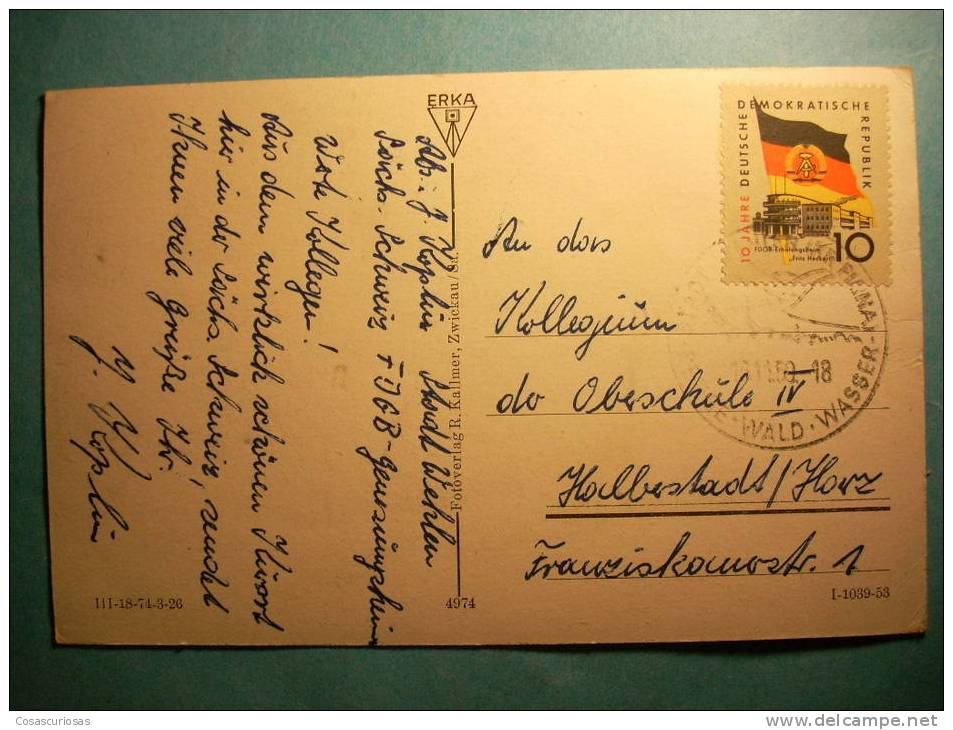 ERKA
Abs.: J. Koplin Stadt Wehlen
Sächs. Schweiz FDGB-Genesungsheim
Werte Kollegen!
Aus dem wirklich schönen Kurort
hier in der Sächs. Schweiz, sendet
Ihnen viele Grüße Ihr
J. Koplin
III-18-74-3-26
Fotoverlag R. Kallmer, Zwickau/Sa.
4974
10 JAHRE DEUTSCHE DEMOKRATISCHE REPUBLIK
FDGB-Erholungsheim
"Fritz Heckert"
10
.11.59.-18
WALD · WASSER
An das
Kollegium
der Oberschule IV
Halberstadt/Harz
Franziskanerstr. 1
I-1039-53
Cosascuriosas
www.delcampe.net